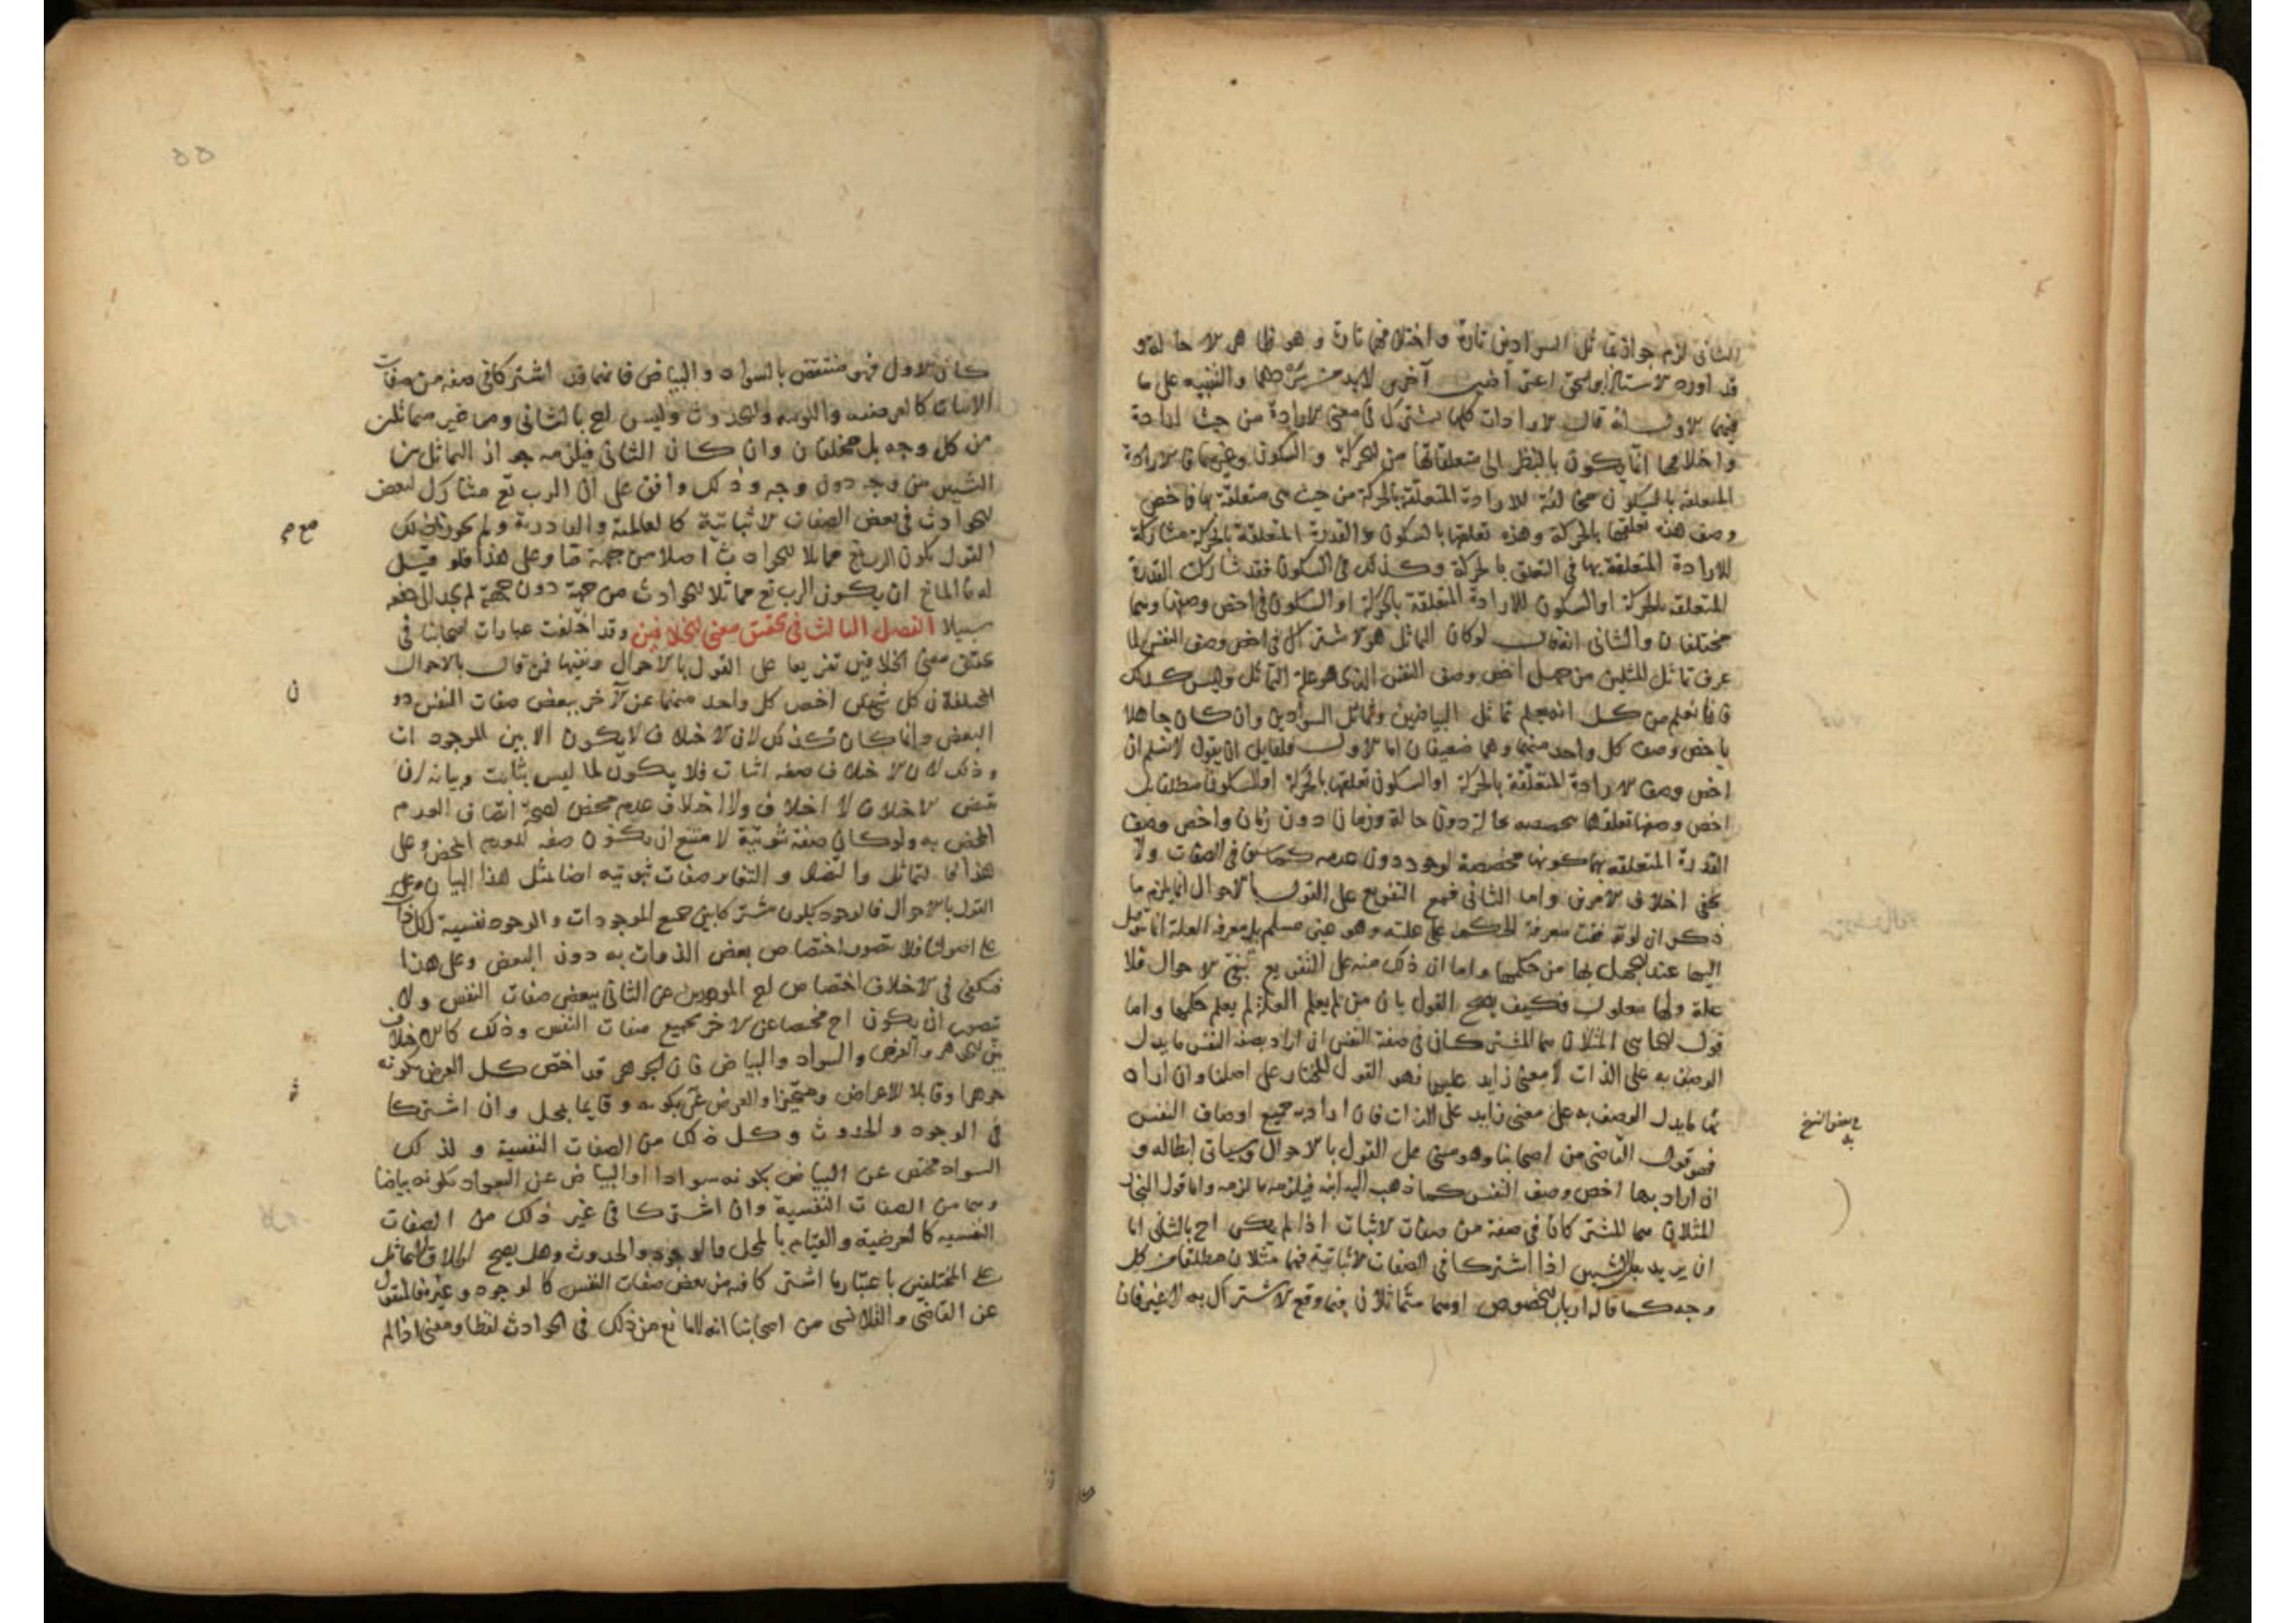 الثانى لزم جواز تماثل السوادين تارة واختلافهما تارة وهو ظاهر الاحالة و
قد اورد الاستاذ ابو اسحق اعتراضين آخرين لابد من شرحهما والتنبيه على ما
فيهما الاول انه قال الارادات كلها تشترك فى معنى الارادة من حيث ارادة
واختلافها انما يكون بالنظر الى متعلقاتها من الحركة والسكون وغيرهما فالارادة
المتعلقة بالسكون مخالفة للارادة المتعلقة بالحركة من حيث هى متعلقة بها فاخص
وصف هذه تعلقها بالحركة وهذه تعلقها بالسكون والقدرة المتعلقة بالحركة مشاركة
للارادة المتعلقة بها فى التعلق بالحركة وكذلك فى السكون فقد شاركت القدرة
المتعلقة بالحركة او السكون للارادة المتعلقة بالحركة او السكون فى اخص وصفها وهما
مختلفان والثانى انه قال لو كان التماثل هو الاشتراك فى اخص وصف النفس لما
عرف تماثل المثلين من جهل اخص وصف النفس الذى هو علة التماثل وليس كذلك
فانا نعلم من كل انه يعلم تماثل البياضين وتماثل السوادين وان كان جاهلا
باخص وصف كل واحد منهما وهما ضعيفان اما الاول فلقايل ان يقول لا نسلم ان
اخص وصف الارادة المتعلقة بالحركة او السكون تعلقها بالحركة او السكون مطلقا بل
اخص وصفها تعلقها مخصصه بحالة دون حالة وزمان دون زمان واخص وصف
القدرة المتعلقه بها كونها مخصصة لوجود دون عدمه كما سبق فى الصفات ولا
يخفى اختلاف الامرين واما الثانى فمع التفريع على القول بالاحوال انما يلزم ما
ذكر ان لو توقفت معرفة الحكم على علته وهو غير مسلم بل معرفة العلة انما يتوصل
اليها عند الجهل بها من حكمها واما ان ذلك منه على التفريع بنفى الاحوال فلا
علة ولا معلول فكيف يصح القول بان من لم يعلم العلة لم يعلم حكمها واما
قول الجباسى المثلان هما المشتركان فى صفة النفس ان اراد بصفة النفس ما يدل
الوصف به على الذات لا معنى زايد عليها فهو القول المختار على اصلنا وان اراد
بها ما يدل الوصف به على معنى زايد على الذات فان اراد به جميع اوصاف النفس
فهو قول القاضى من اصحابنا وهو مبنى على القول بالاحوال وسياتى ابطاله و
ان اراد بها اخص وصف النفس كما ذهب اليه ابنه فيلزمه ما لزمه واما قول النجار
المثلان هما المشتركان فى صفة من صفات الاثبات اذا لم يكن احدهما بالثانى اما
ان يريد به ان الشيئين اذا اشتركا فى الصفات الاثباتية فهما مثلان مطلقا من كل
وجه كما قاله ارباب الخصوص او هما متماثلان فيما وقع الاشتراك به لا غير فان
فى بعض النسخ
به
كان الاول فهو منتقض بالسواد والبياض فانهما قد اشتركا فى صفة من صفات
الاثبات كالعرضيه واللونيه والحدوث وليس احدهما بالثانى وهما غير متماثلين
من كل وجه بل مختلفان وان كان الثانى فيلزمه جواز التماثل بين
الشيئين من وجه دون وجه وذلك وافق على ان الرب تع مشارك لبعض
الحوادث فى بعض الصفات الاثباتية كالعالمية والقادرية ولم يجوز ذلك
القول بكون الرب تع مماثلا للحوادث اصلا من جهة ما وعلى هذا فلو قيل
له ما المانع ان يكون الرب تع مماثلا للحوادث من جهة دون جهة لم يجد الى دفعه
سبيلا الفصل الثالث فى تحقيق معنى الخلافين وقد اختلفت عبارات اصحابنا فى
تحقيق معنى الخلافين تفريعا على القول بالاحوال ونفيها فمن قال بالاحوال
المختلفان كل شيئين اختص كل واحد منهما عن الآخر ببعض صفات النفس دون
البعض وانما كان كذلك لان الاختلاف لا يكون الا بين الموجودات
وذلك لان الاختلاف صفه اثبات فلا يكون لما ليس بثابت وبيانه ان
نقيض الاختلاف لا اختلاف ولا اختلاف عدم محض لصحة اتصاف العدم
المحض به ولو كان صفة ثبوتية لامتنع ان يكون صفه للعدم المحض وعلى
هذا فالتماثل والتضاد والتغاير صفات ثبوتيه ايضا بمثل هذا البيان وعلى
القول بالاحوال فالوجود يكون مشتركا بين جميع الموجودات والوجود نفسية لكل ذات
على اصولنا فلا يتصور اختصاص بعض الذوات به دون البعض وعلى هذا
فيكفى فى الاختلاف اختصاص احد الموجودين عن الثانى ببعض صفات النفس ولا
يتصور ان يكون احدهما مختصا عن الاخر بجميع صفات النفس وذلك كالاختلاف
بين الجوهر والعرض والسواد والبياض فان الجوهر قد اختص عن العرض بكونه
جوهرا وقابلا للاعراض ومتحيزا والعرض عنه بكونه وقايما بمحل وان اشتركا
فى الوجود والحدوث وكل ذلك من الصفات النفسية ولذلك
السواد مختص عن البياض بكونه سوادا والبياض عن السواد بكونه بياضا
وهما من الصفات النفسية وان اشتركا فى غير ذلك من الصفات
النفسيه كالعرضية والقيام بالمحل والوجود والحدوث وهل يصح اطلاق التماثل
على المختلفين باعتبار ما اشتركا فيه من بعض صفات النفس كالوجود وغيره فالمنقول
عن القاضى والقلانسى من اصحابنا انه لا مانع من ذلك فى الحوادث لفظا ومعنى اذا لم